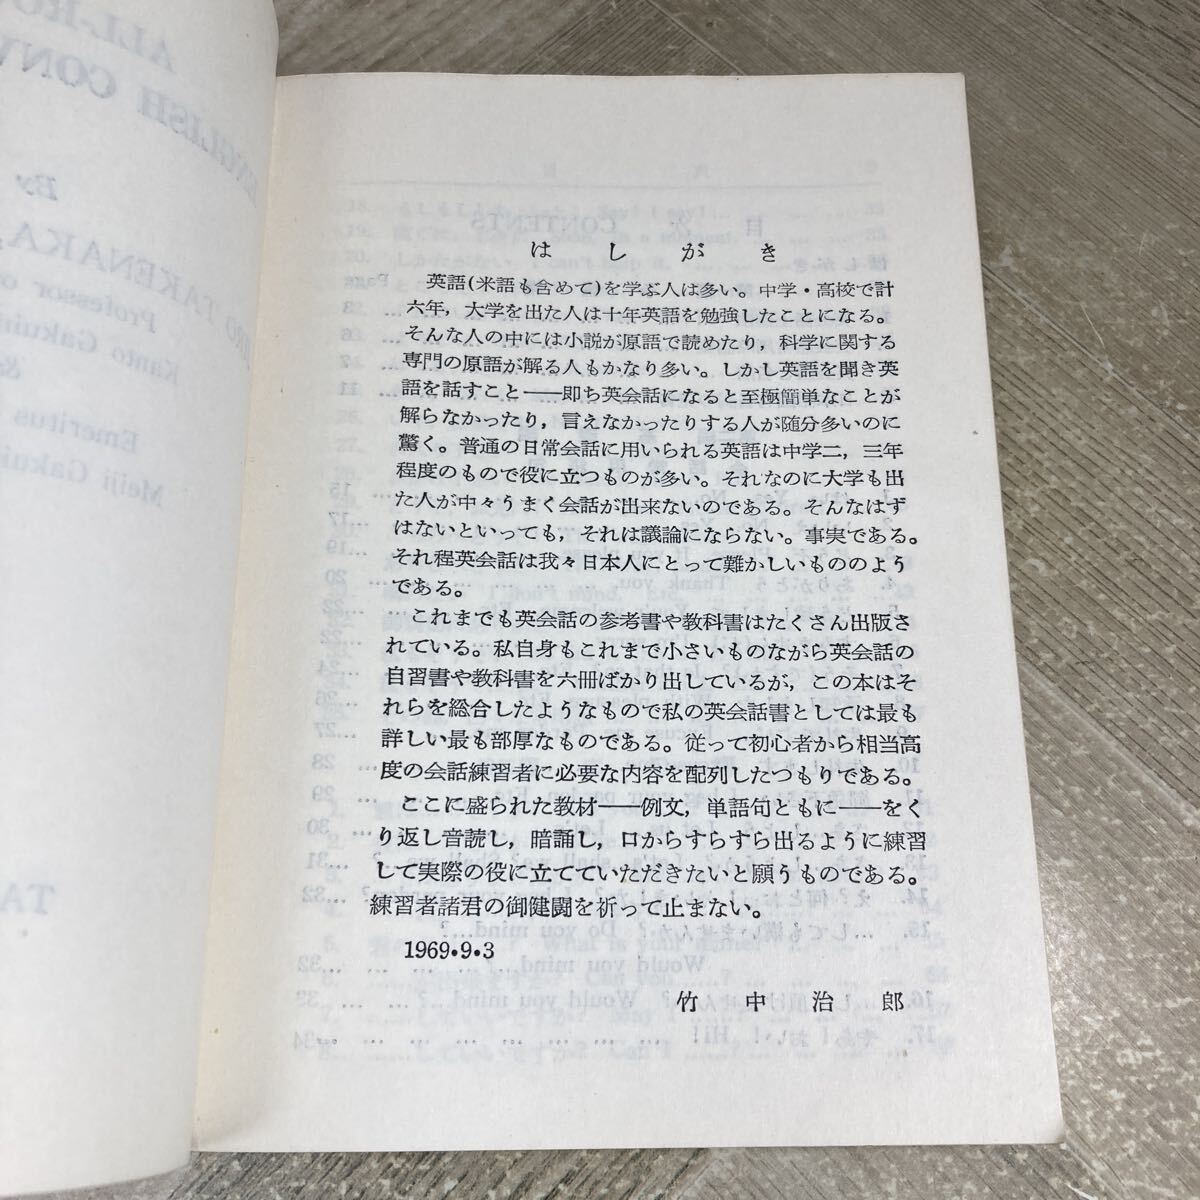 はしがき
英語(米語も含めて)を学ぶ人は多い。中学・高校で計
六年，大学を出た人は十年英語を勉強したことになる。
そんな人の中には小説が原語で読めたり，科学に関する
専門の原語が解る人もかなり多い。しかし英語を聞き英
語を話すこと――即ち英会話になると至極簡単なことが
解らなかったり，言えなかったりする人が随分多いのに
驚く。普通の日常会話に用いられる英語は中学二，三年
程度のもので役に立つものが多い。それなのに大学も出
た人が中々うまく会話が出来ないのである。そんなはず
はないといっても，それは議論にならない。事実である。
それ程英会話は我々日本人にとって難かしいもののよう
である。
これまでも英会話の参考書や教科書はたくさん出版さ
れている。私自身もこれまで小さいものながら英会話の
自習書や教科書を六冊ばかり出しているが，この本はそ
れらを総合したようなもので私の英会話書としては最も
詳しい最も部厚なものである。従って初心者から相当高
度の会話練習者に必要な内容を配列したつもりである。
ここに盛られた教材――例文，単語句ともに――をく
り返し音読し，暗誦し，口からすらすら出るように練習
して実際の役に立てていただきたいと願うものである。
練習者諸君の御健闘を祈って止まない。
1969・9・3
竹中治郎